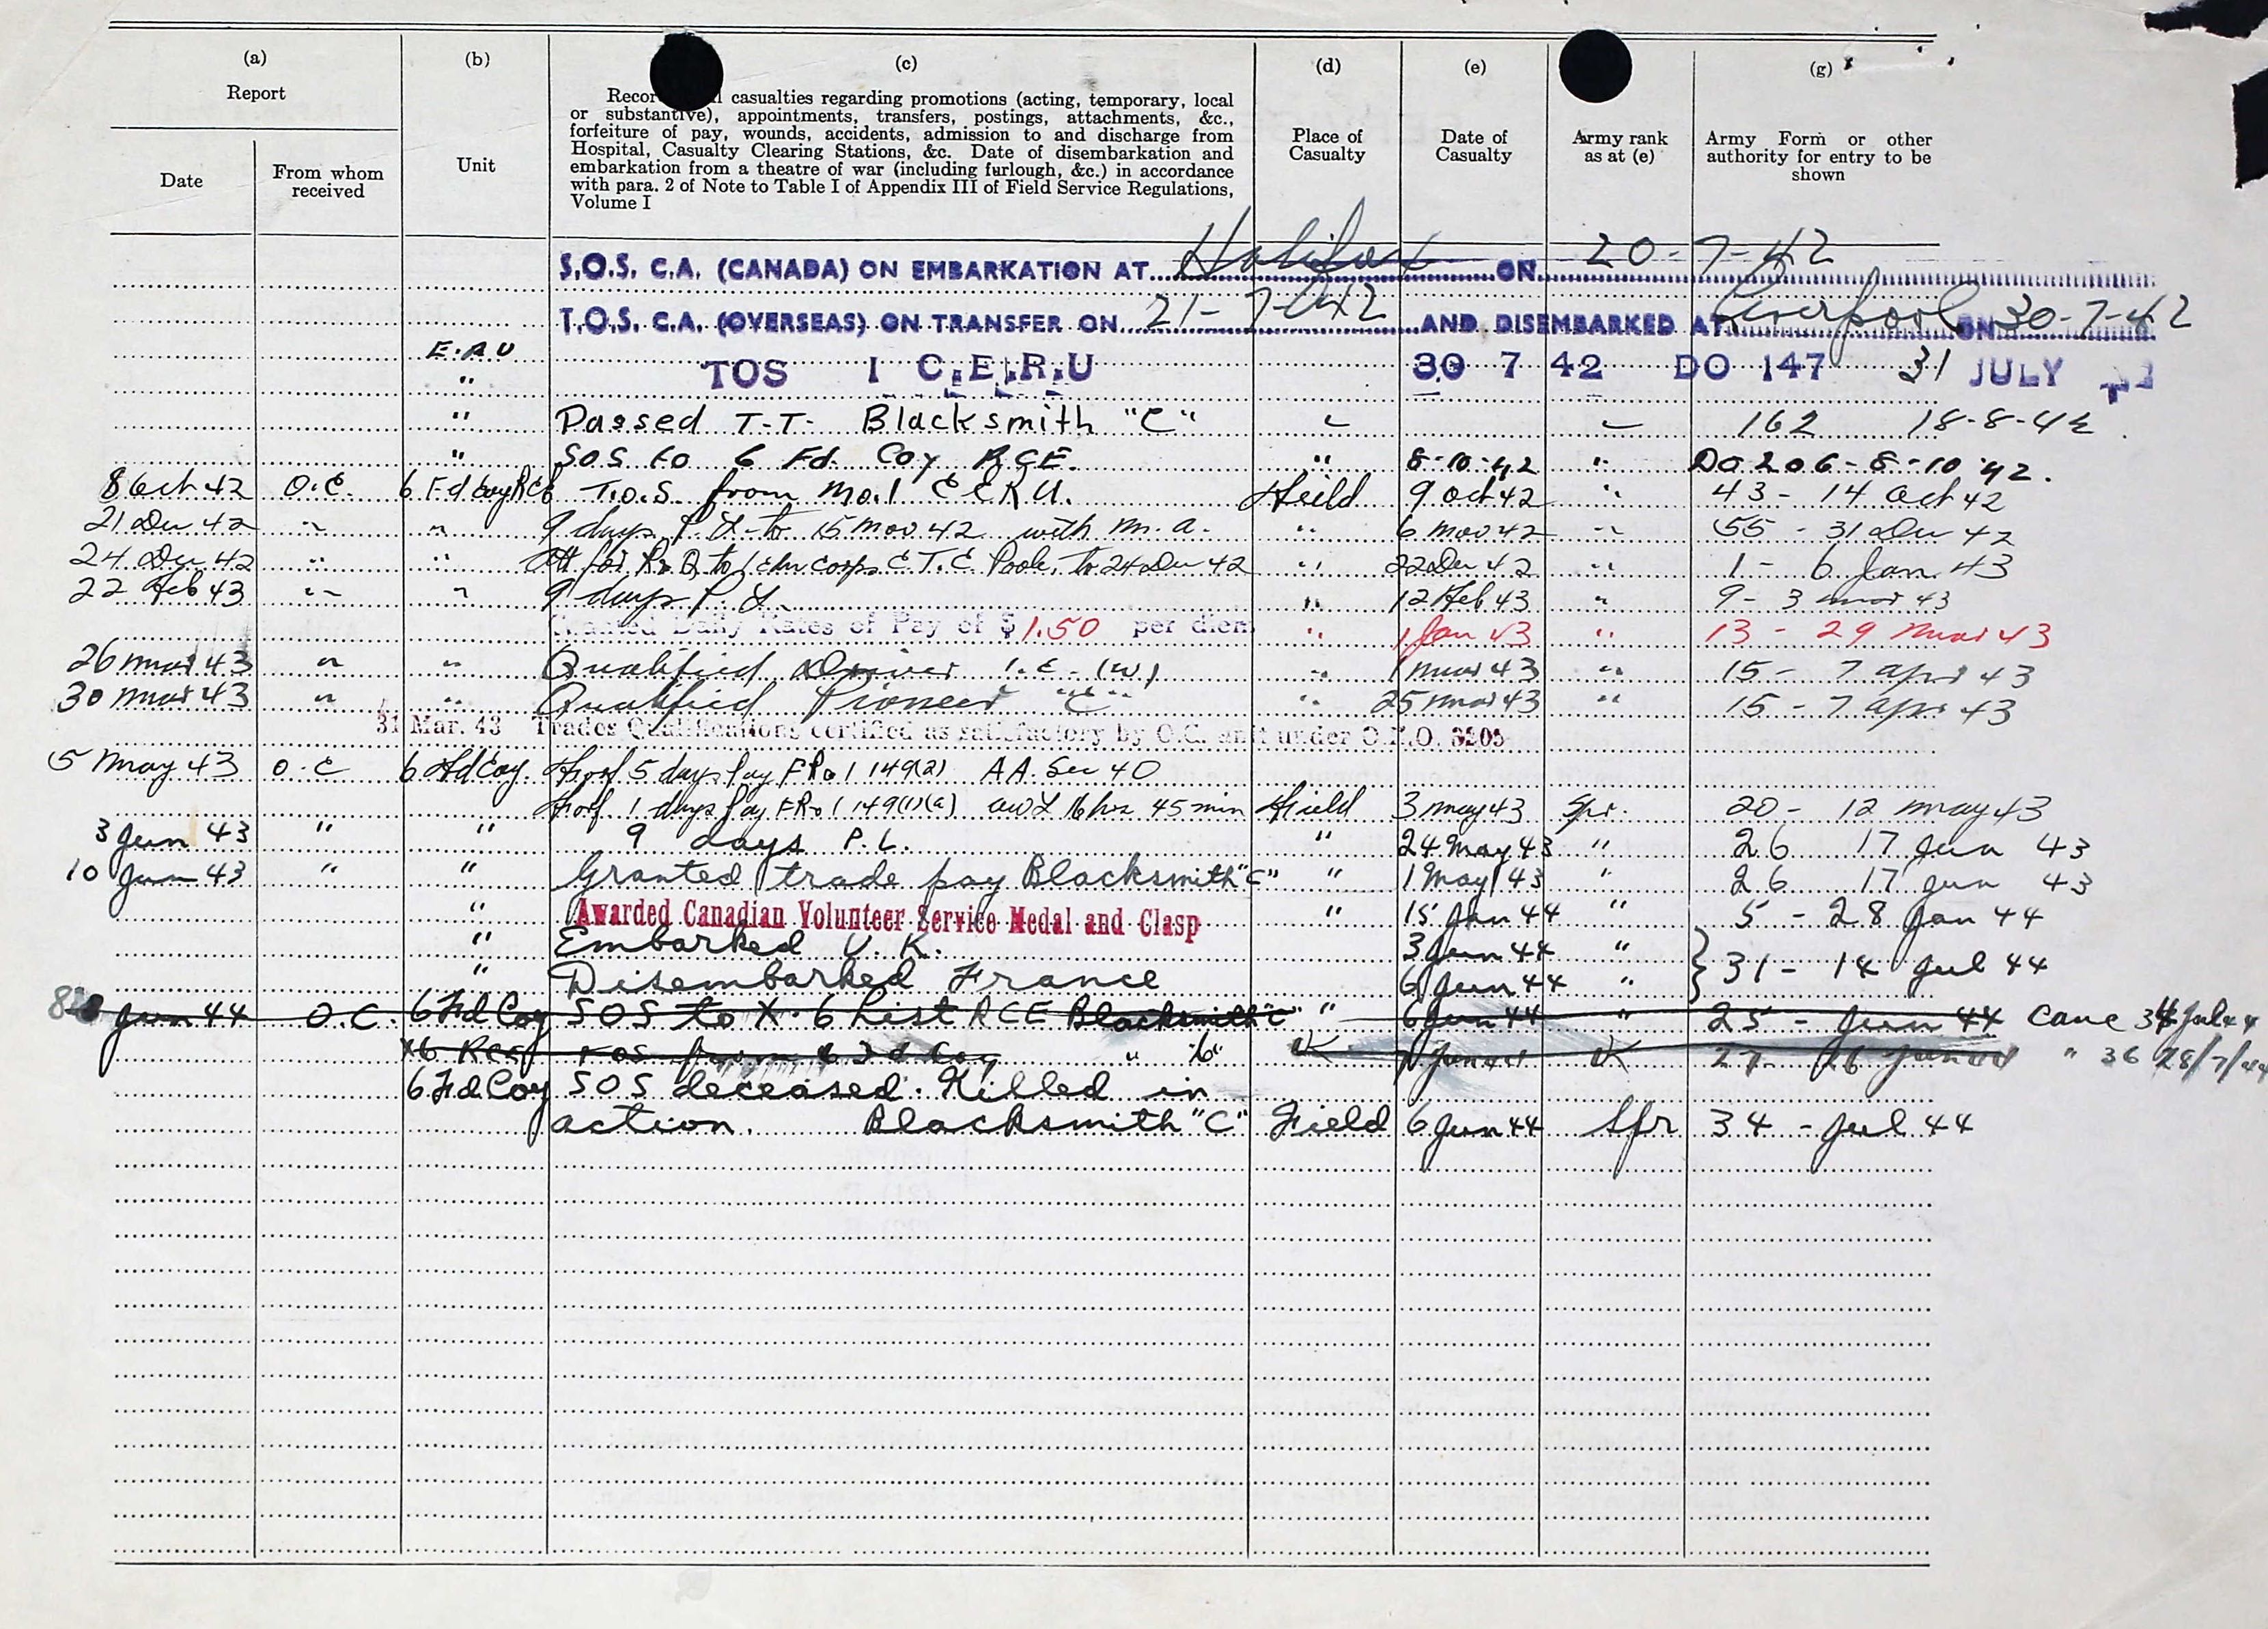 (a) (b) (c) (d) (e) (g)
Report
Date
From whom received
Unit
Recor casualties regarding promotions (acting, temporary, local
or substantive), appointments, transfers, postings, attachments, &c.,
forfeiture of pay, wounds, accidents, admission to and discharge from
Hospital, Casualty Clearing Stations, &c. Date of disembarkation and
embarkation from a theatre of war (including furlough, &c.) in accordance
with para. 2 of Note to Table I of Appendix III of Field Service Regulations,
Volume I
Place of Casualty
Date of Casualty
Army rank as at (e)
Army Form or other
authority for entry to be
shown
S.O.S. C.A. (CANADA) ON EMBARKATION AT Halifax ON 20-7-42
T.O.S. C.A. (OVERSEAS) ON TRANSFER ON 21-7-42 AND DISEMBARKED AT Liverpool ON 30-7-42
E.R.U
" TOS 1 C.E.R.U 30 7 42 DO 147 31 JULY
" Passed T-T- Blacksmith "C" 162 18-8-42
" SOS to 6 Fd. Coy RCE. " 8-10-42 " DO 206-8-10-42.
8 Oct 42 O.C. 6 Fd Coy RCE T.O.S. from No.1 CERU. Feild 9 Oct 42 " 43 - 14 Oct 42
21 Dec 42 " " 9 days P.L. to 15 Nov 42 with M.A. " 6 Nov 42 " 55 - 31 Dec 42
24 Dec 42 " " Att for R & Q to 1 Cdn Corps C.T.C Pool, to 24 Dec 42 " 22 Dec 42 " 1 - 6 Jan 43
22 Feb 43 " " 9 days P.L. " 12 Feb 43 " 9 - 3 Mar 43
Granted Daily Rates of Pay of $1.50 per diem " 1 Jan 43 " 13 - 29 Mar 43
26 Mar 43 " " Qualified Driver I.C. (W) " 1 Mar 43 " 15 - 7 Apr 43
30 Mar 43 " " Qualified Pioneer "C" " 25 Mar 43 " 15 - 7 Apr 43
31 Mar. 43 Trades Qualifications certified as satisfactory by O.C. unit under O.R.O. 3205
5 May 43 O.C 6 Fd Coy. Forf. 5 days Pay FR & I 149(2) AA. Sec 40
Forf. 1 days Pay FR & I 149(1)(a) AWL 16 hrs 45 min Field 3 May 43 Spr. 20 - 12 May 43
3 Jun 43 " " 9 days P.L. " 24 May 43 " 26 17 Jun 43
10 Jun 43 " " Granted trade pay Blacksmith "C" " 1 May 43 " 26 17 Jun 43
" Awarded Canadian Volunteer Service Medal and Clasp " 15 Jan 44 " 5 - 28 Jan 44
" Embarked U.K. 3 Jun 44 "
" Disembarked France 6 Jun 44 " } 31 - 14 Jul 44
Jun 44 O.C. 6 Fd Coy SOS to X-6 List RCE Blacksmith "C" " 6 Jun 44 " 25 - Jun 44 Canc 34 Jul 44
X6 RCE TOS from 6 Fd Coy " "C" UK 7 Jun 44 UK 27 - 26 Jun 44 " 36 28/7/44
6 Fd Coy SOS deceased. Killed in
action. Blacksmith "C" Field 6 Jun 44 Spr 34 - Jul 44